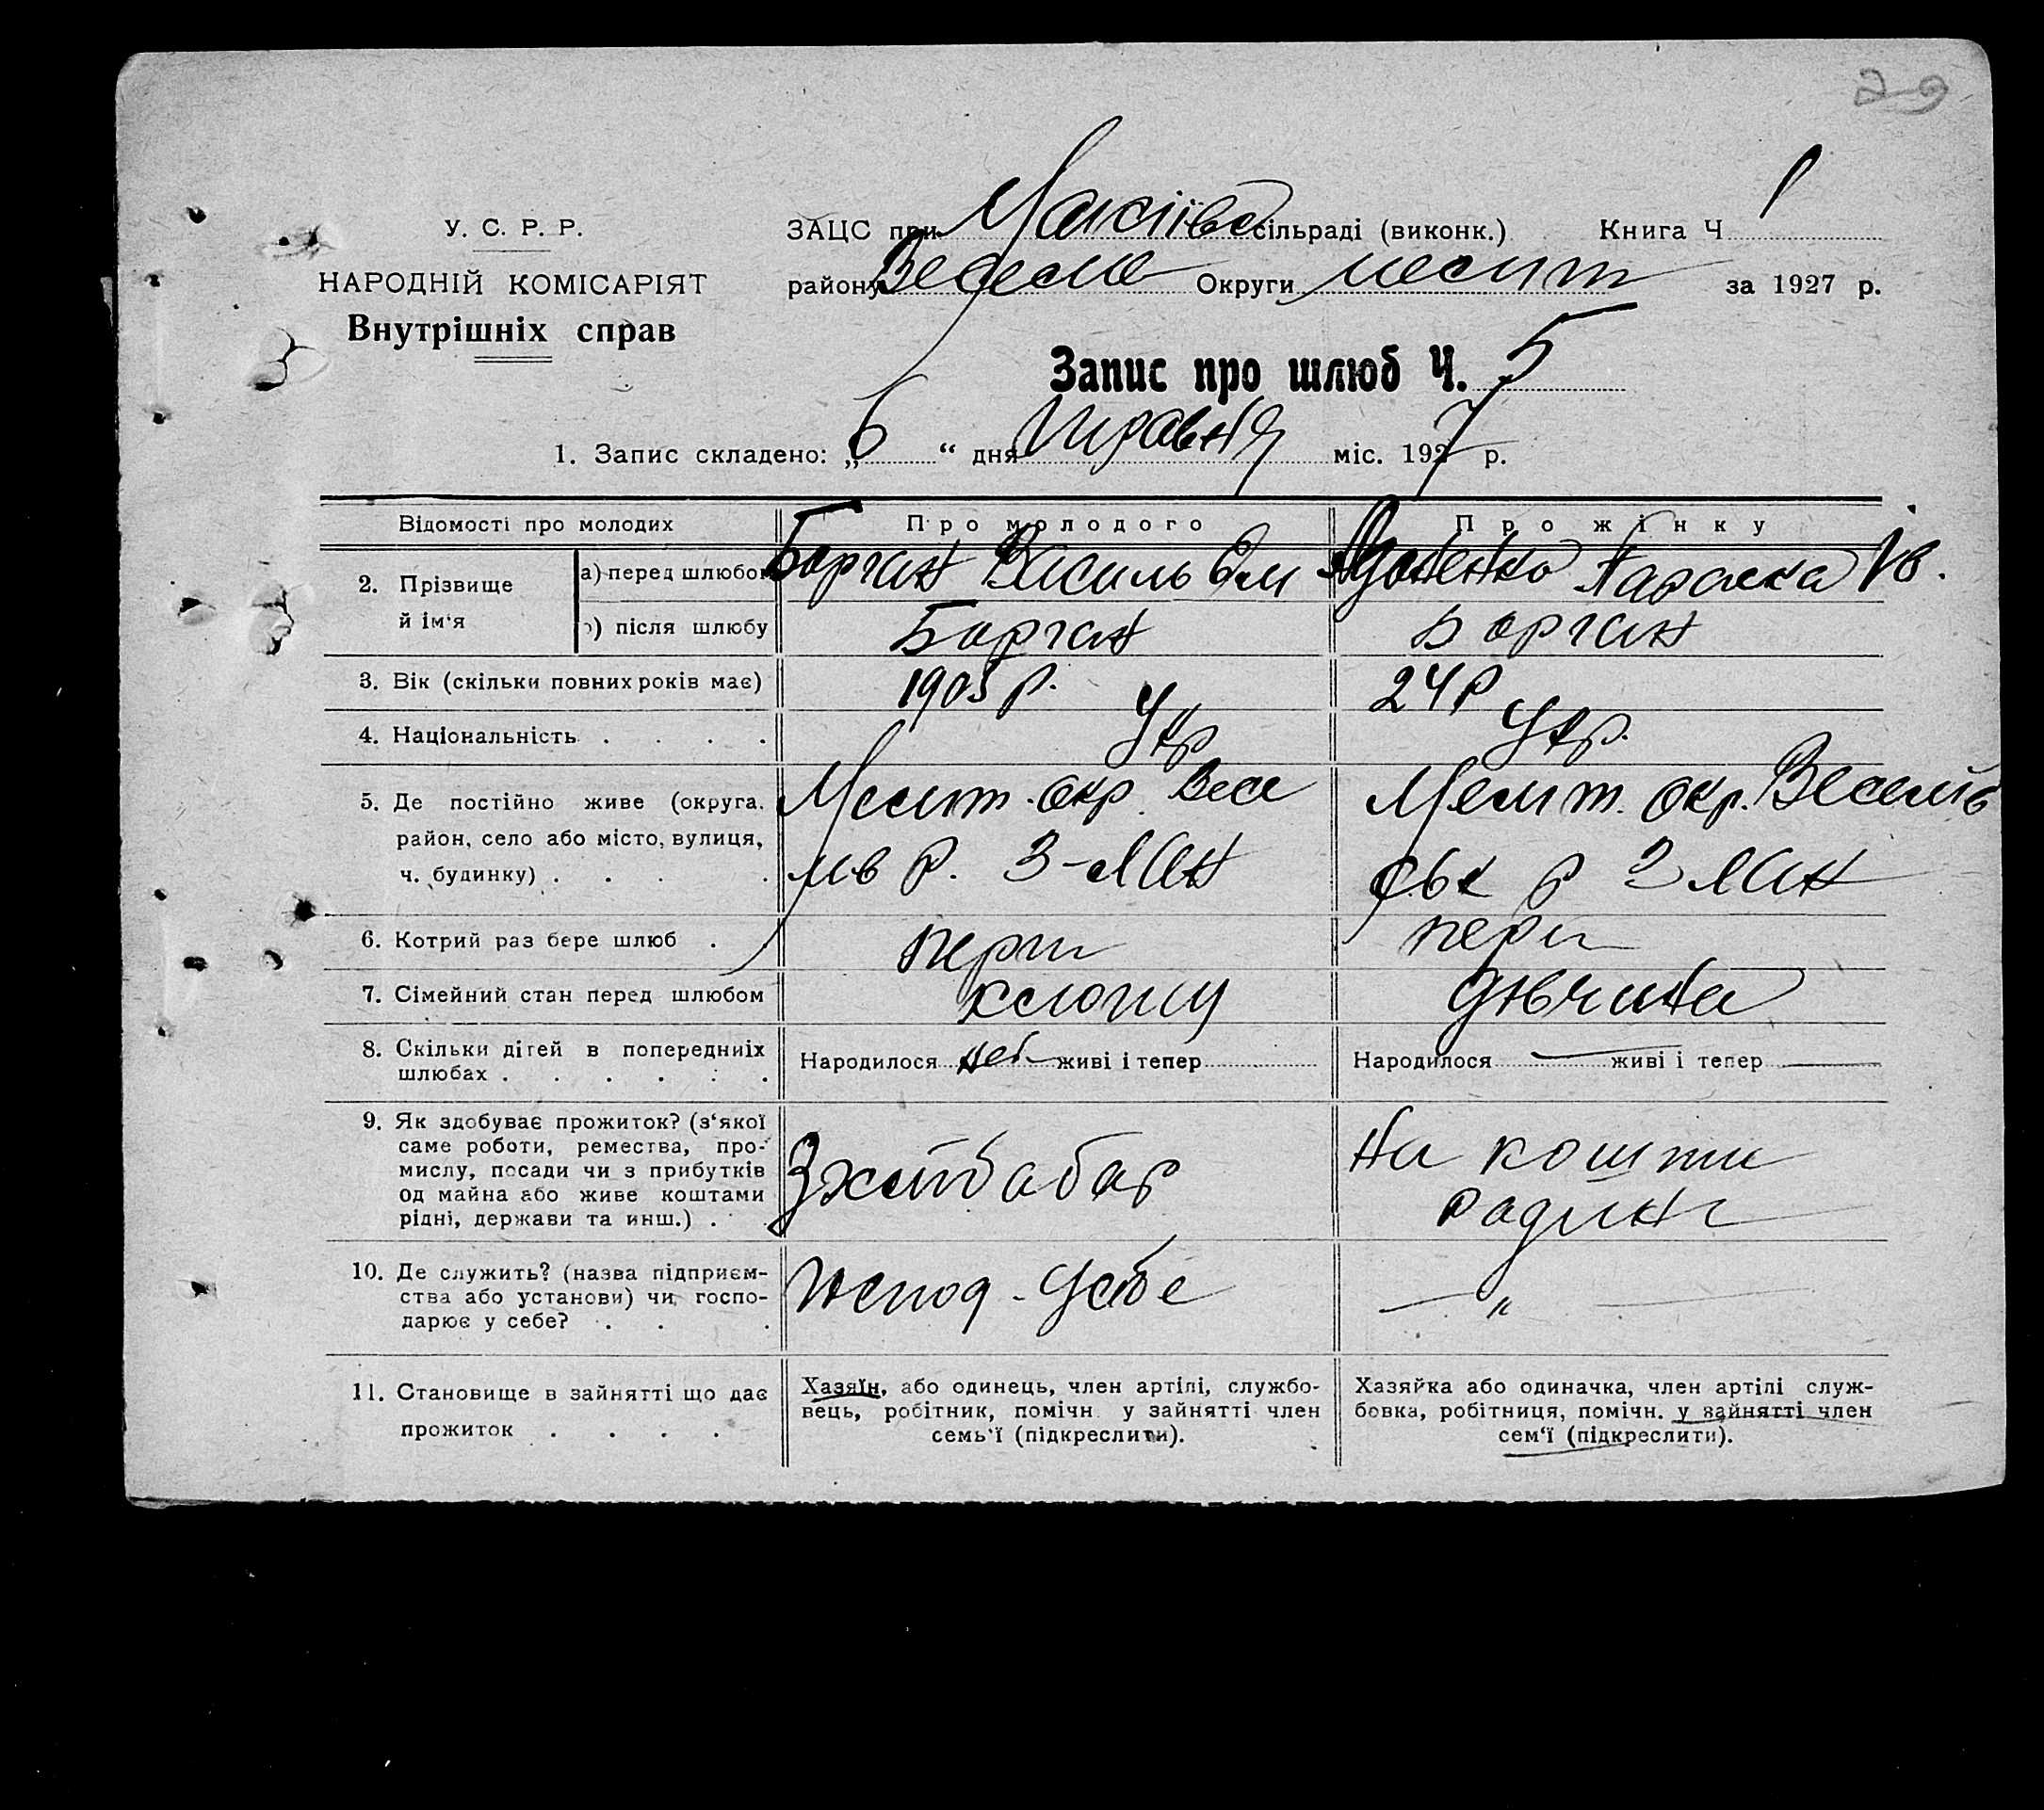 29
У. С. Р. Р.
НАРОДНІЙ КОМІСАРІЯТ
Внутрішніх справ
ЗАЦС при сільраді (виконк.) Книга Ч 1
району Веселе Округи мелит за 1927 р.
Запис про шлюб Ч. 5
1. Запис складено: „6“ дня Травня міс. 1927 р.
Відомості про молодих Про молодого Про жінку
2. Прізвище й ім‘я
а) перед шлюбом Борган Василь Параска Ів.
б) після шлюбу Борган Борган
3. Вік (скільки повних років має) 1905 р. 24 р
4. Національність . . . . Укр Укр.
5. Де постійно живе (округа, Мелит. окр. Весе Мелит. окр. Веселів
район, село або місто, вулиця, лів р. З-ЛАН ськ р З ЛАН
ч. будинку) . . . .
6. Котрий раз бере шлюб . . перш перш
7. Сімейний стан перед шлюбом хлопец дівчина
8. Скільки дітей в попередниіх Народилося нет живі і тепер Народилося — живі і тепер —
шлюбах . . . . . .
9. Як здобуває прожиток? (з‘якої
саме роботи, ремества, про-
мислу, посади чи з прибутків
од майна або живе коштами
рідні, держави та инш.) . .
Зхлібабор
На кошти
родини
10. Де служить? (назва підприєм-
ства або установи) чи госпо-
дарює у себе? . . .
У себе
— „ —
11. Становище в зайнятті що дає
прожиток . . . .
Хазяїн, або одинець, член артілі, службо-
вець, робітник, помічн. у зайнятті член
семь‘ї (підкреслити).
Хазяйка або одиначка, член артілі служ-
бовка, робітниця, помічн. у зайнятті член
сем‘ї (підкреслити).